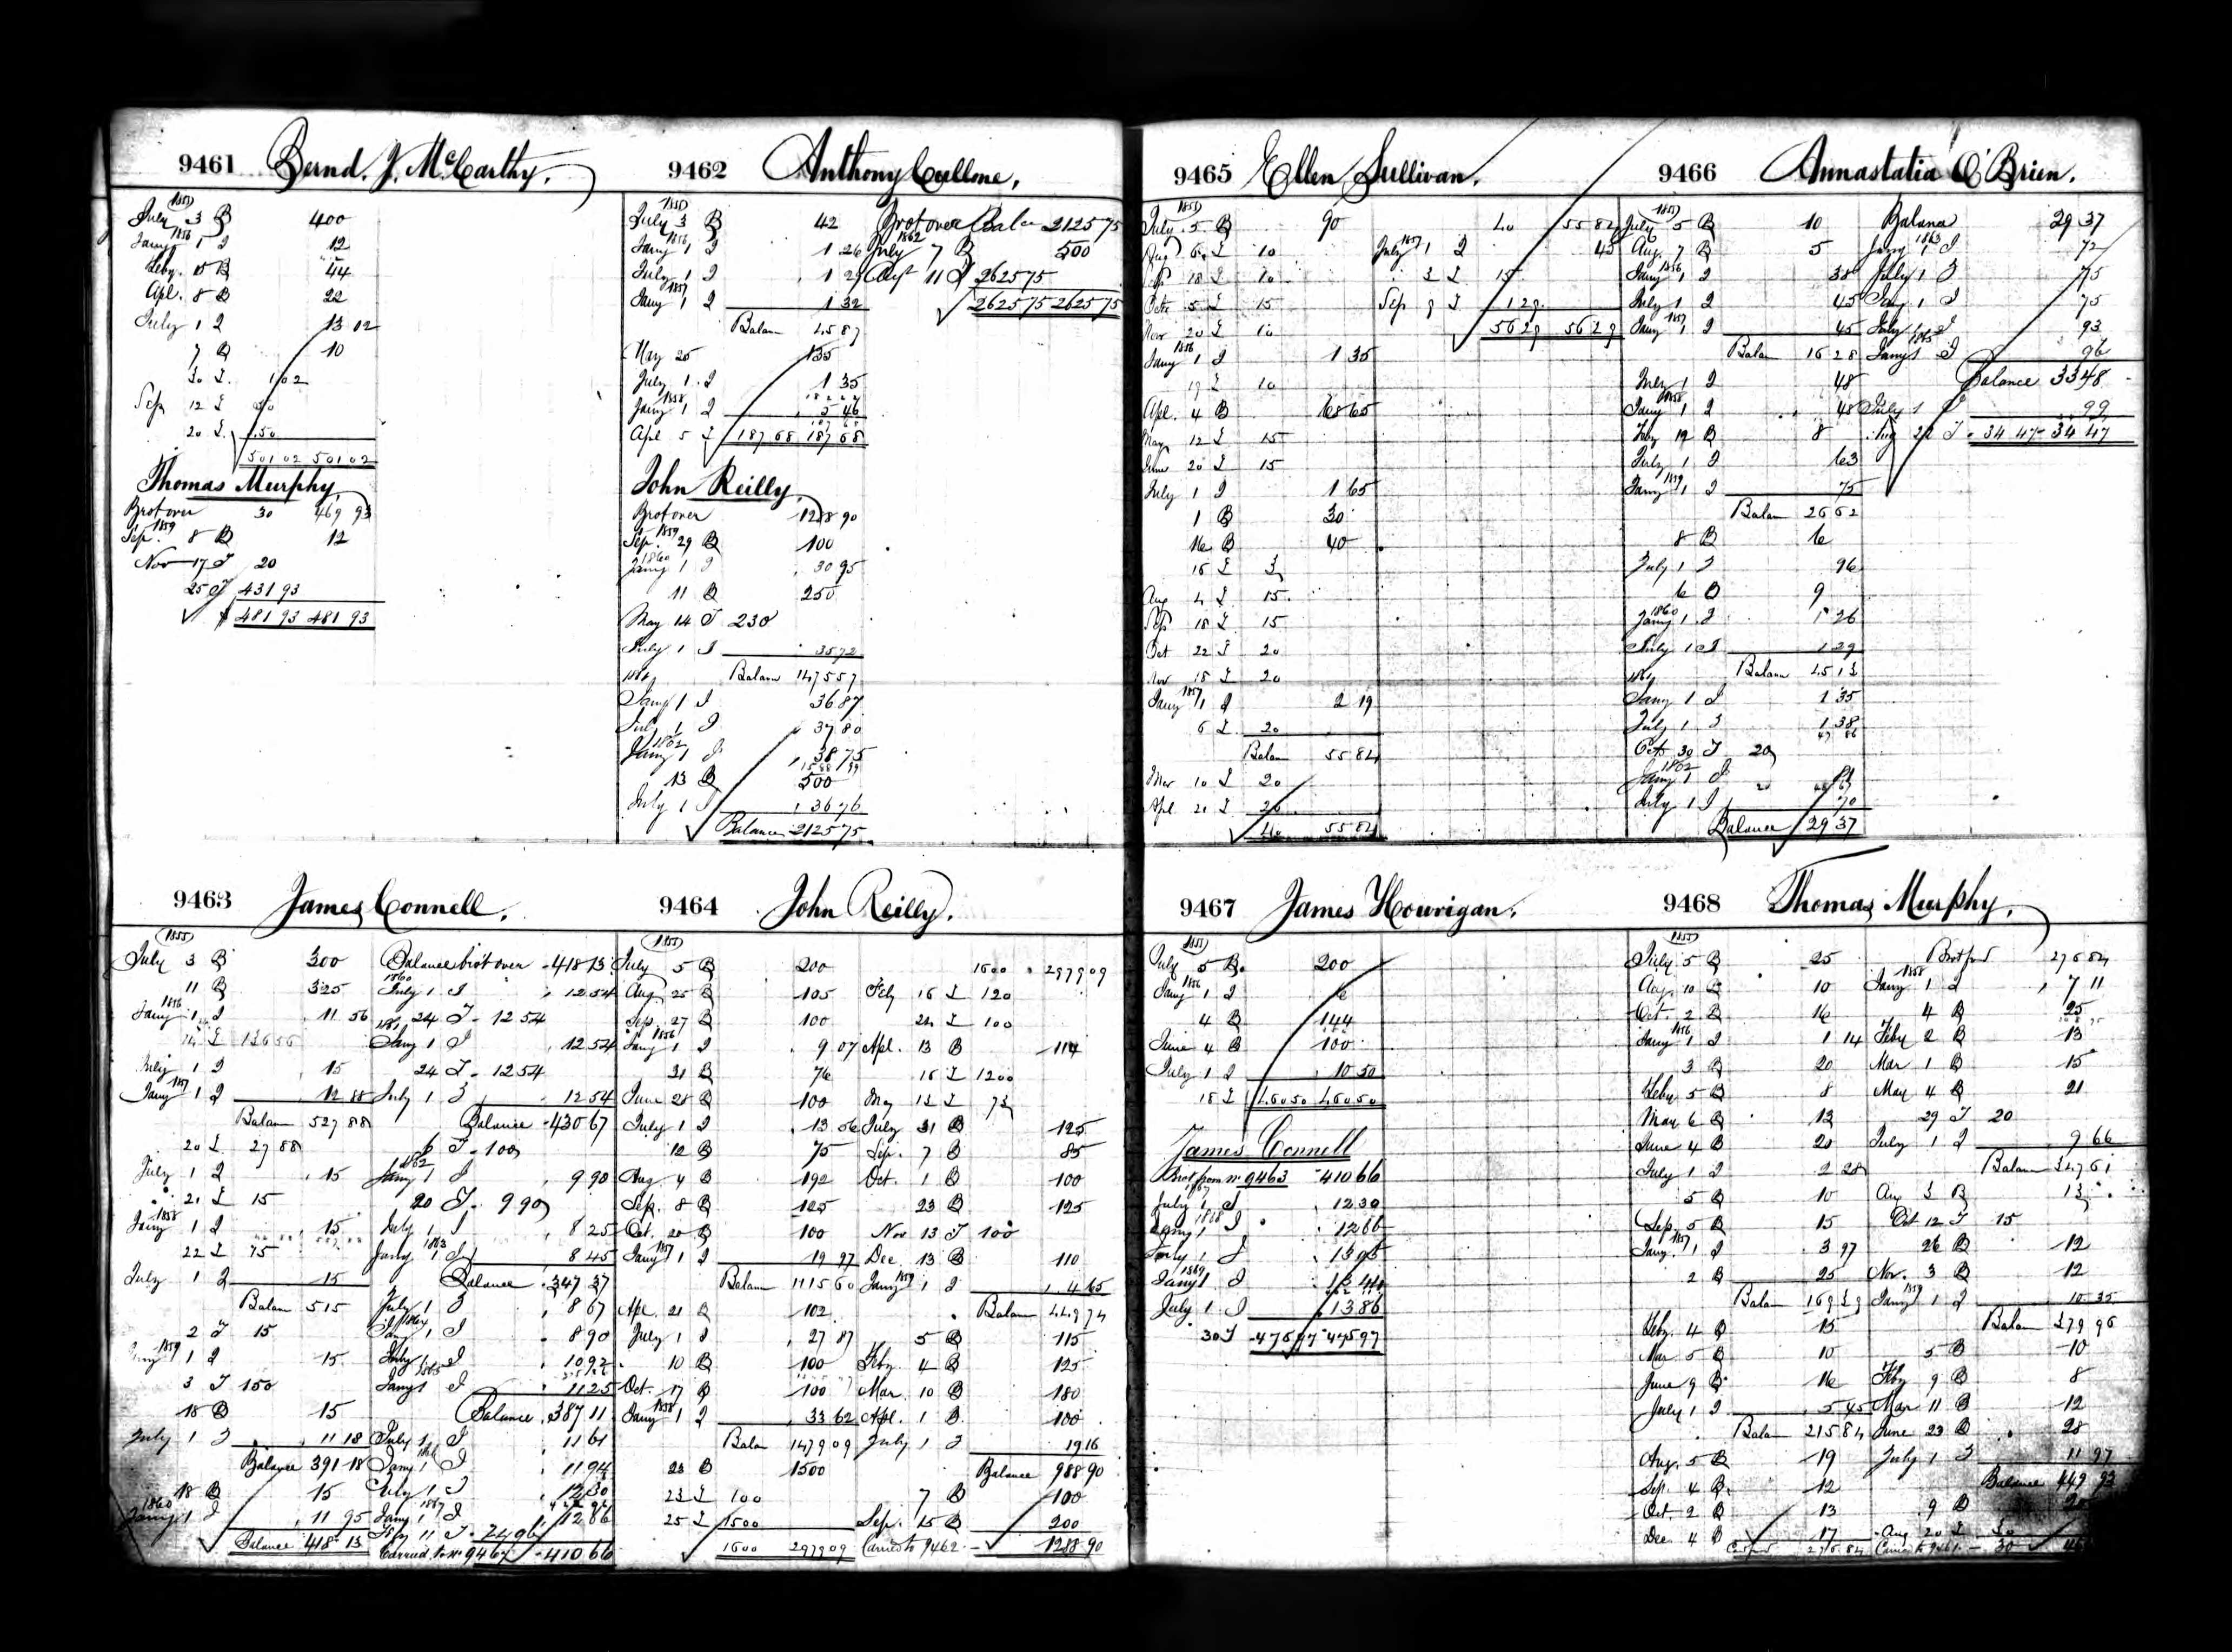 9461 Bernd. J. McCarthy.
1855
July 3 B 400
1856
Jany 1 I 12
Feby. 15 B 44
Apl. 8 B 22
July 1 I 13 02
7 B 10
Sep 12 I
20 I
501 02 501 02
Thomas Murphy
Brot over 30 469 93
1859
Sep. 8 B 12
Nov 17 I 20
25 I 431 93
$ 481 93 481 93
9462 Anthony Cullone.
1855
July 3 B 42
1856
Jany 1 I 1 26
July 1 I 1 29
1857
Jany 1 I 1 32
Balan 45 87
May 25 135
July 1 I 1 35
1858
Jany 1 I 5 46
Apl 5 I 187 68 187 68
Brot over Balan 2125 75
1862
July 7 B 500
Augt 11 I 2625 75
2625 75 2625 75
John Reilly.
Brot over 1288 90
1859
Sep. 29 B 100
1860
Jany 1 I 30 95
11 B 250
May 14 I 230
July 1 I 35 72
1861 Balan 1475 57
Jany 1 I 36 87
July 1 I 37 80
1862
Jany 1 I 38 75
13 B 500
July 1 I 36 76
Balance 2125 75
9463 James Connell.
1855
July 3 B 300
11 B 325
1856
Jany 1 I 11 56
July 1 I 15
1857
Jany 1 I 12 88
Balan 527 88
20 I 27 88
July 1 I 15
21 I 15
1858
Jany 1 I 15
22 I 75
July 1 I 15
Balan 515
2 I 15
1859
Jany 1 I 15
3 I 150
18 B 15
July 1 I 11 18
Balance 391 18
18 B 15
1860
Jany 1 I 11 95
Balance 418 13
Balance brot over 418 13
1860
July 1 I 12 54
24 I 12 54
1861
Jany 1 I 12 54
24 I 12 54
July 1 I 12 54
Balance 430 67
6 I 100
1862
Jany 1 I 9 90
20 I 9 90
July 1 I 8 25
1863
Jany 1 I 8 45
Balance 347 37
July 1 I 8 67
1864
Jany 1 I 8 90
July 1 I 10 92
1865
Jany 1 I 11 25
Balance 387 11
July 1 I 11 61
1866
Jany 1 I 11 94
July 1 I 12 30
1867
Jany 1 I 12 86
11 I 24 96
Carried to No 9467 410 66
9464 John Reilly.
1855
July 5 B 200
Aug 25 B 105
Sep. 27 B 100
1856
Jany 1 I 9 07
31 B 76
June 28 B 100
July 1 I 13 56
12 B 75
Aug. 4 B 192
Sep. 8 B 125
Oct. 20 B 100
1857
Jany 1 I 19 97
Balan 1115 60
Apl. 21 B 102
July 1 I 27 87
10 B 100
Oct. 17 B 100
1858
Jany 1 I 33 62
Balan 1479 09
23 B 1500
23 I 100
25 I 1500
1600 2979 09
1600 2979 09
Feby 16 I 120
24 I 100
Apl. 13 B 114
16 I 1200
May 13 I 73
July 31 B 125
Sep. 7 B 85
Oct. 1 B 100
23 B 125
Nov 13 I 100
Dec. 13 B 110
1859
Jany 1 I 4 65
Balan 449 74
5 B 115
Feby. 4 B 125
Mar. 10 B 180
Apl. 1 B 100
July 1 I 19 16
Balance 988 90
7 B 100
Sep. 15 B 200
Carried to 9462 1288 90
9465 Ellen Sullivan.
1855
July 5 B 90
Aug 6 I 10
Sep 18 I 10
Octr 5 I 15
Nov 20 I 10
1856
Jany 1 I 1 35
19 I 10
Apl. 4 B 68 65
May 12 I 15
June 20 I 15
July 1 I 1 65
1 B 30
16 B 40
Aug 4 I 15
Sep 18 I 15
Oct 22 I 20
Nov 18 I 20
1857
Jany 1 I 2 19
6 I 20
Balan 55 84
Mar 10 I 20
Apl. 21 I 20
40 55 84
40 55 84
1857
July 1 I 45
3 I 15
Sep 9 I 1 29
56 29 56 29
9466 Annastatia O'Brien.
1855
July 5 B 10
Aug. 7 B 5
1856
Jany 1 I 38
July 1 I 45
1857
Jany 1 I 45
Balan 16 28
July 1 I 48
1858
Jany 1 I 48
Feby 19 B 8
July 1 I 63
1859
Jany 1 I 75
Balan 26 62
8 B 6
July 1 I 96
6 B 9
1860
Jany 1 I 1 26
July 1 I 1 29
1861 Balann 45 13
Jany 1 I 1 35
July 1 I 1 38
47 86
Octr 30 I 20
1862
Jany 1 I 81
July 1 I 70
Balance 29 37
Balance 29 37
1863
Jany 1 I 72
July 1 I 75
Jany 1 I 75
July 1 I 93
1865
Jany 1 I 96
Balance 33 48
July 1 I 99
Aug 22 I 34 47 34 47
9467 James Hourigan.
1855
July 5 B. 200
1856
Jany 1 I 6
4 B 144
June 4 B 100
July 1 I 10 50
18 I 460 50 460 50
James Connell
Brot from No 9463 410 66
1867
July 1 I 12 30
1868
Jany 1 I 12 66
July 1 I 13 05
1869
Jany 1 I 13 44
July 1 I 13 86
30 I 475 97 475 97
9468 Thomas Murphy.
1855
July 5 B 25
Aug. 10 B 10
Oct. 2 B 16
1856
Jany 1 I 1 14
3 B 20
Feby 5 B 8
May 6 B 13
June 4 B 20
July 1 I 2 28
5 B 10
Sep. 5 B 15
1857
Jany. 1 I 3 97
2 B 25
Balan 169 39
Feby. 4 B 15
Mar. 5 B 10
June 9 B 16
July 1 I 5 45
Balan 215 84
Aug. 5 B 19
Sep. 4 B 12
Oct. 2 B 13
Dec. 4 B 17
276 84
Brot ford 276 84
1858
Jany 1 I 7 11
4 B 25
Feby 2 B 13
Mar 1 B 15
May 4 B 21
29 I 20
July 1 I 9 66
Balan 347 61
Aug 3 B 13
Oct 12 I 15
26 B 12
Nov. 3 B 12
1859
Jany 1 I 10 35
Balan 379 96
5 B 10
Feby 9 B 8
Mar 11 B 12
June 23 B 28
July 1 I 11 97
Balance 449 93
9 B 20
Aug 20 I 30
Carried to 9461 30